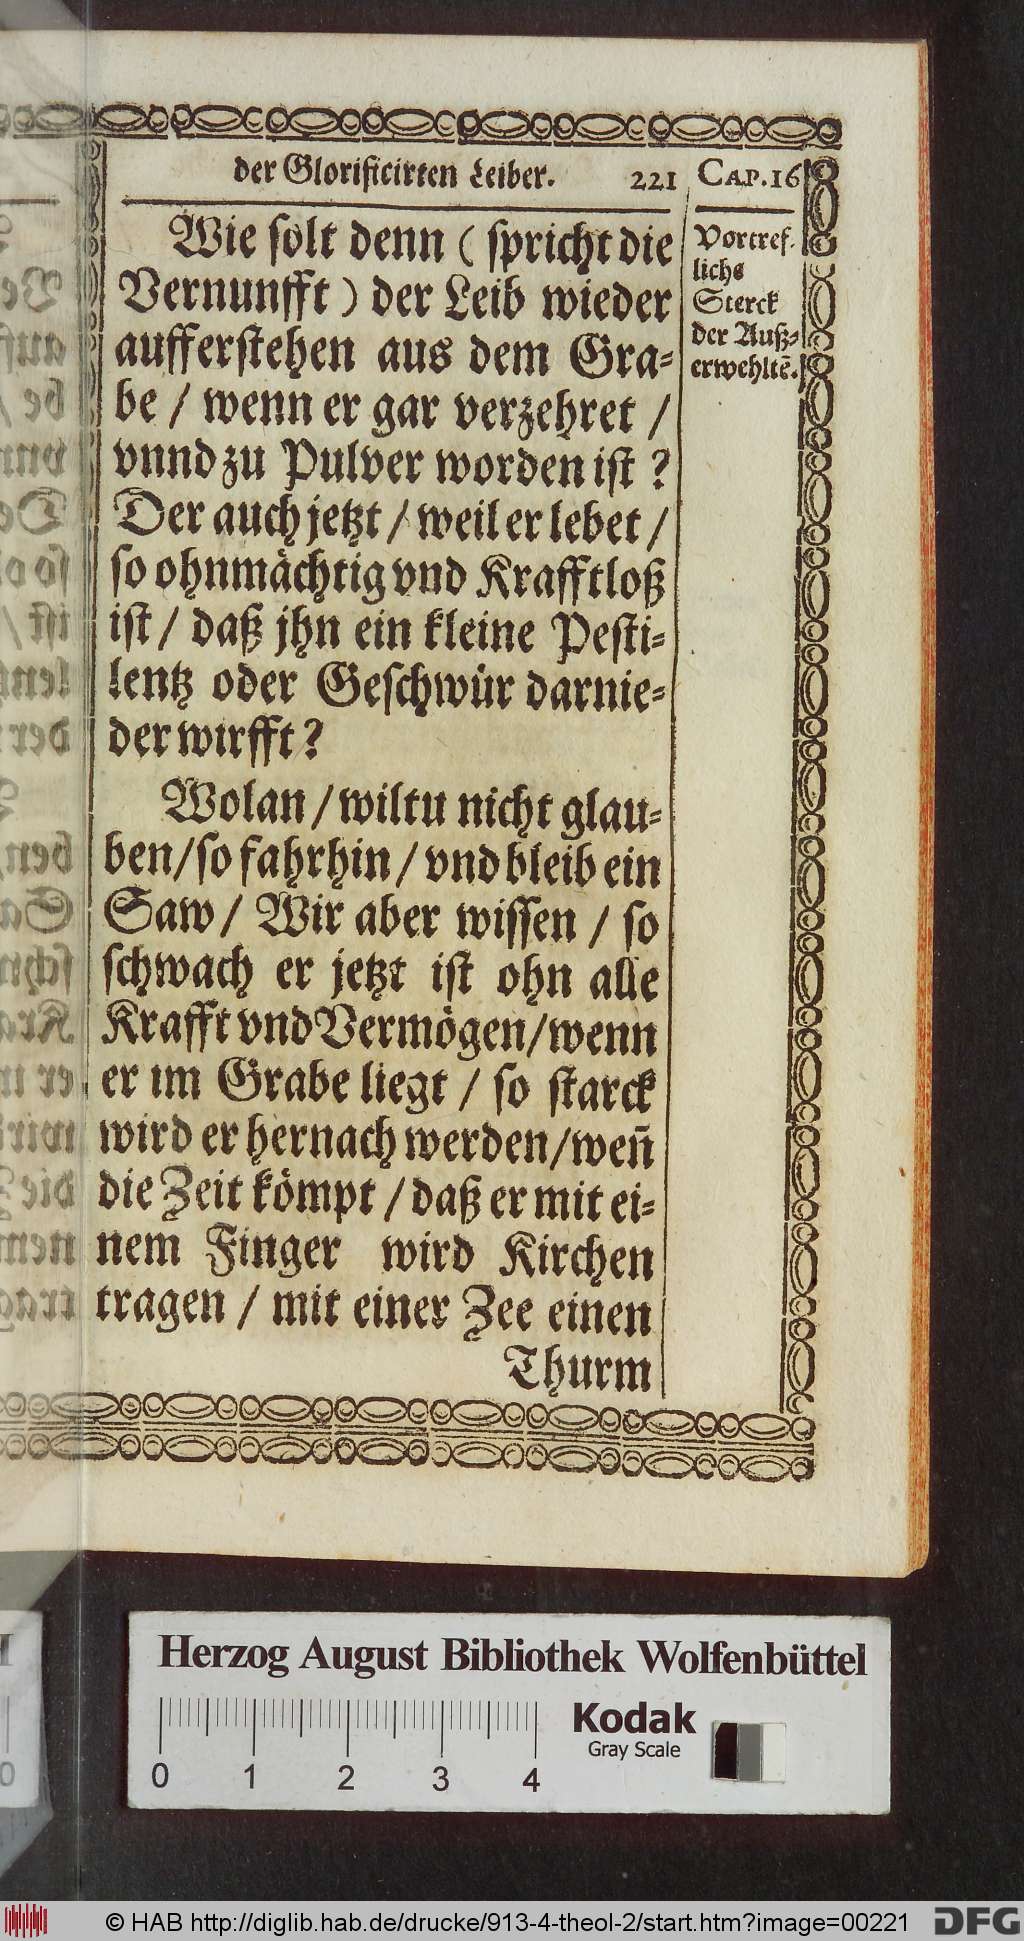 der Glorificirten Leiber. 221 CAP. 16
Wie solt denn ( spricht die
Vernunfft ) der Leib wieder
aufferstehen aus dem Gra-
be / wenn er gar verzehret /
vnnd zu Pulver worden ist ?
Der auch jetzt / weil er lebet /
so ohnmächtig vnd Krafftloß
ist / daß jhn ein kleine Pesti-
lentz oder Geschwür darnie-
der wirfft ?
Wolan / wiltu nicht glau-
ben / so fahrhin / vnd bleib ein
Saw / Wir aber wissen / so
schwach er jetzt ist ohn alle
Krafft vnd Vermögen / wenn
er im Grabe liegt / so starck
wird er hernach werden / weñ
die Zeit kömpt / daß er mit ei-
nem Finger wird Kirchen
tragen / mit einer Zee einen
Thurm
Vortref-
lichs
Sterck
der Auß-
erwehltẽ.
Herzog August Bibliothek Wolfenbüttel
Kodak
Gray Scale
0 1 2 3 4
© HAB http://diglib.hab.de/drucke/913-4-theol-2/start.htm?image=00221
DFG